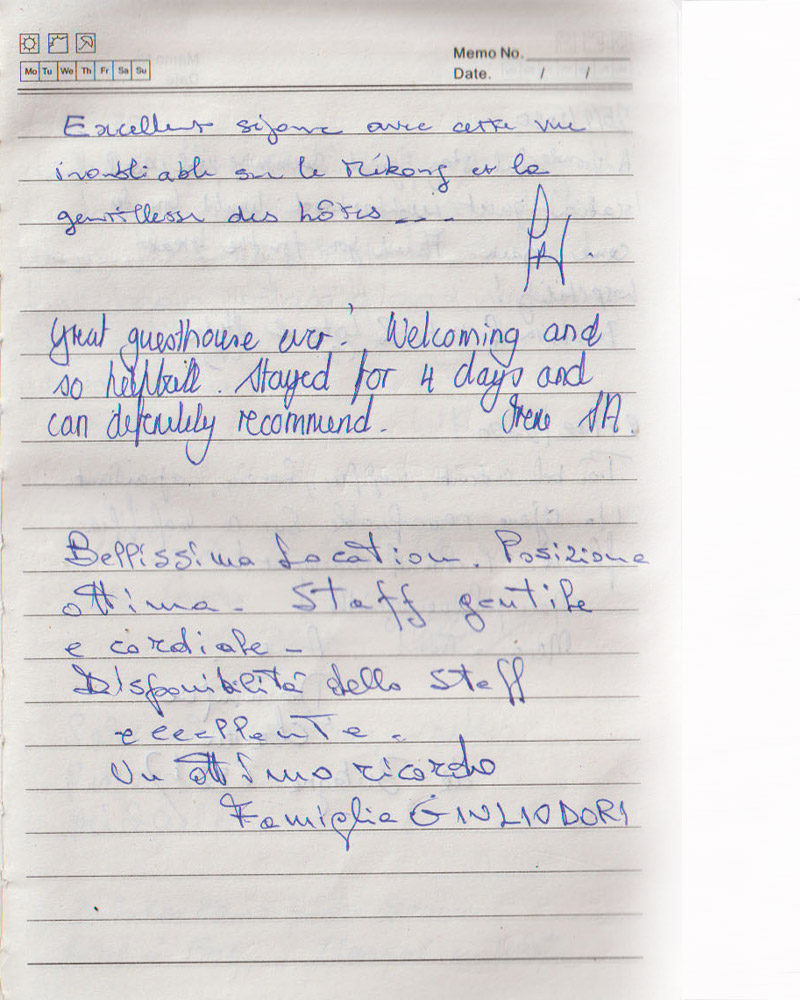 Mo Tu We Th Fr Sa Su
Memo No.
Date. / /
Excellent séjour avec cette vue
inoubliable sur le Mékong et la
gentillesse des hôtes ....
Great guesthouse ever! Welcoming and
so helpfull. Stayed for 4 days and
can defenitely recommend. Irene SA.
Bellissima location. Posizione
ottima - Staff gentile
e cordiale -
Disponibilità dello staff
eccellente.
Un ottimo ricordo
Famiglia GIULIODORI